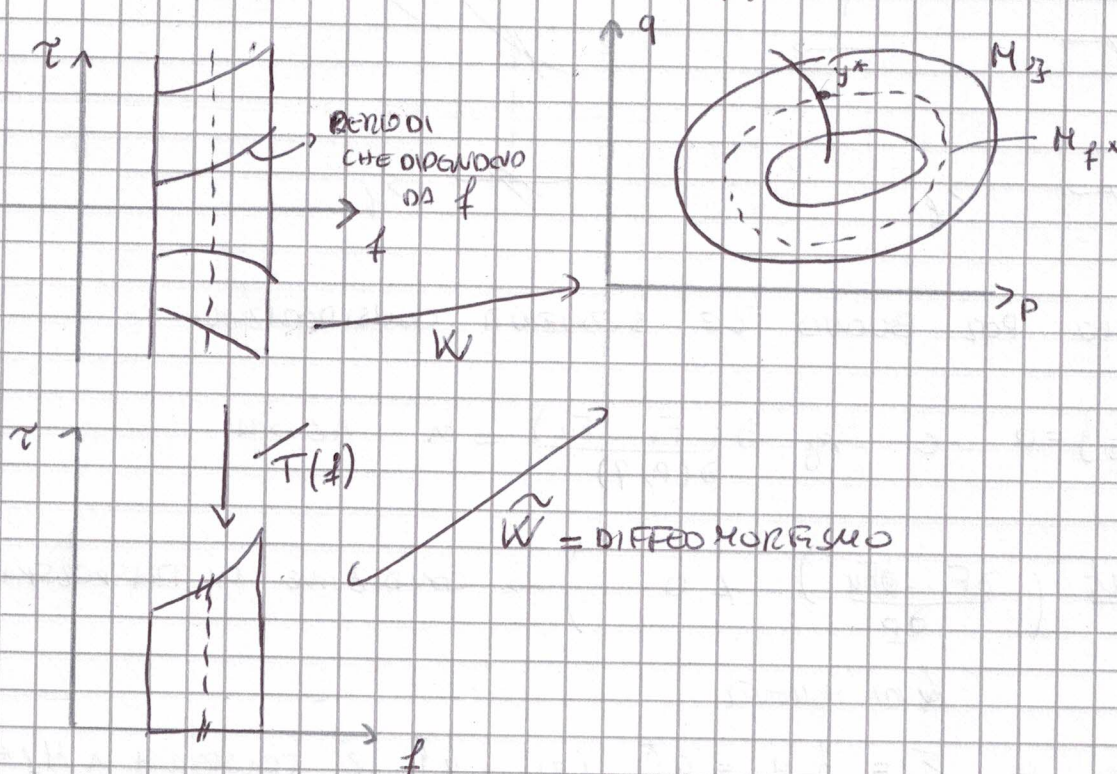 τ
q
y*
M_f
PERIODI
CHE DIPENDONO
DA f
M_f*
f
p
W
τ
T(f)
W̃ = DIFFEOMORFISMO
f